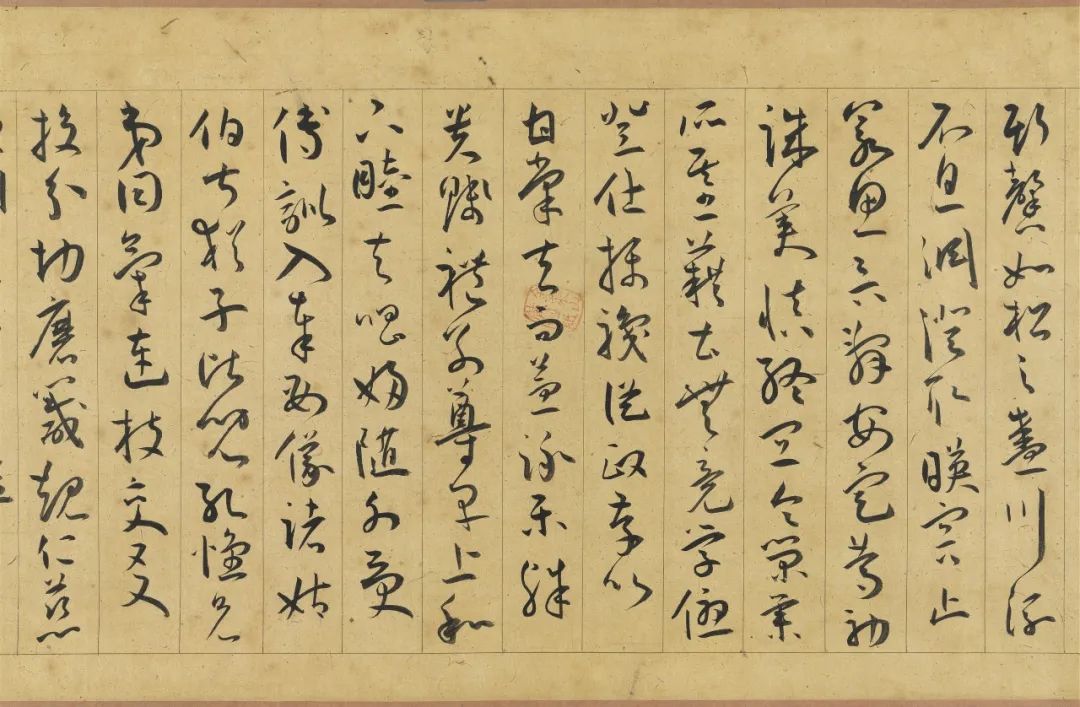 斯馨如松之盛川流
不息淵澄取暎容止
若思言辭安定篤初
誠美慎終宜令榮業
所基藉甚無竟學優
登仕攝職從政存以
甘棠去而益詠樂殊
貴賤禮別尊卑上和
下睦夫唱婦隨外受
傅訓入奉母儀諸姑
伯叔猶子比兒孔懷兄
弟同氣連枝交友
投分切磨箴規仁慈